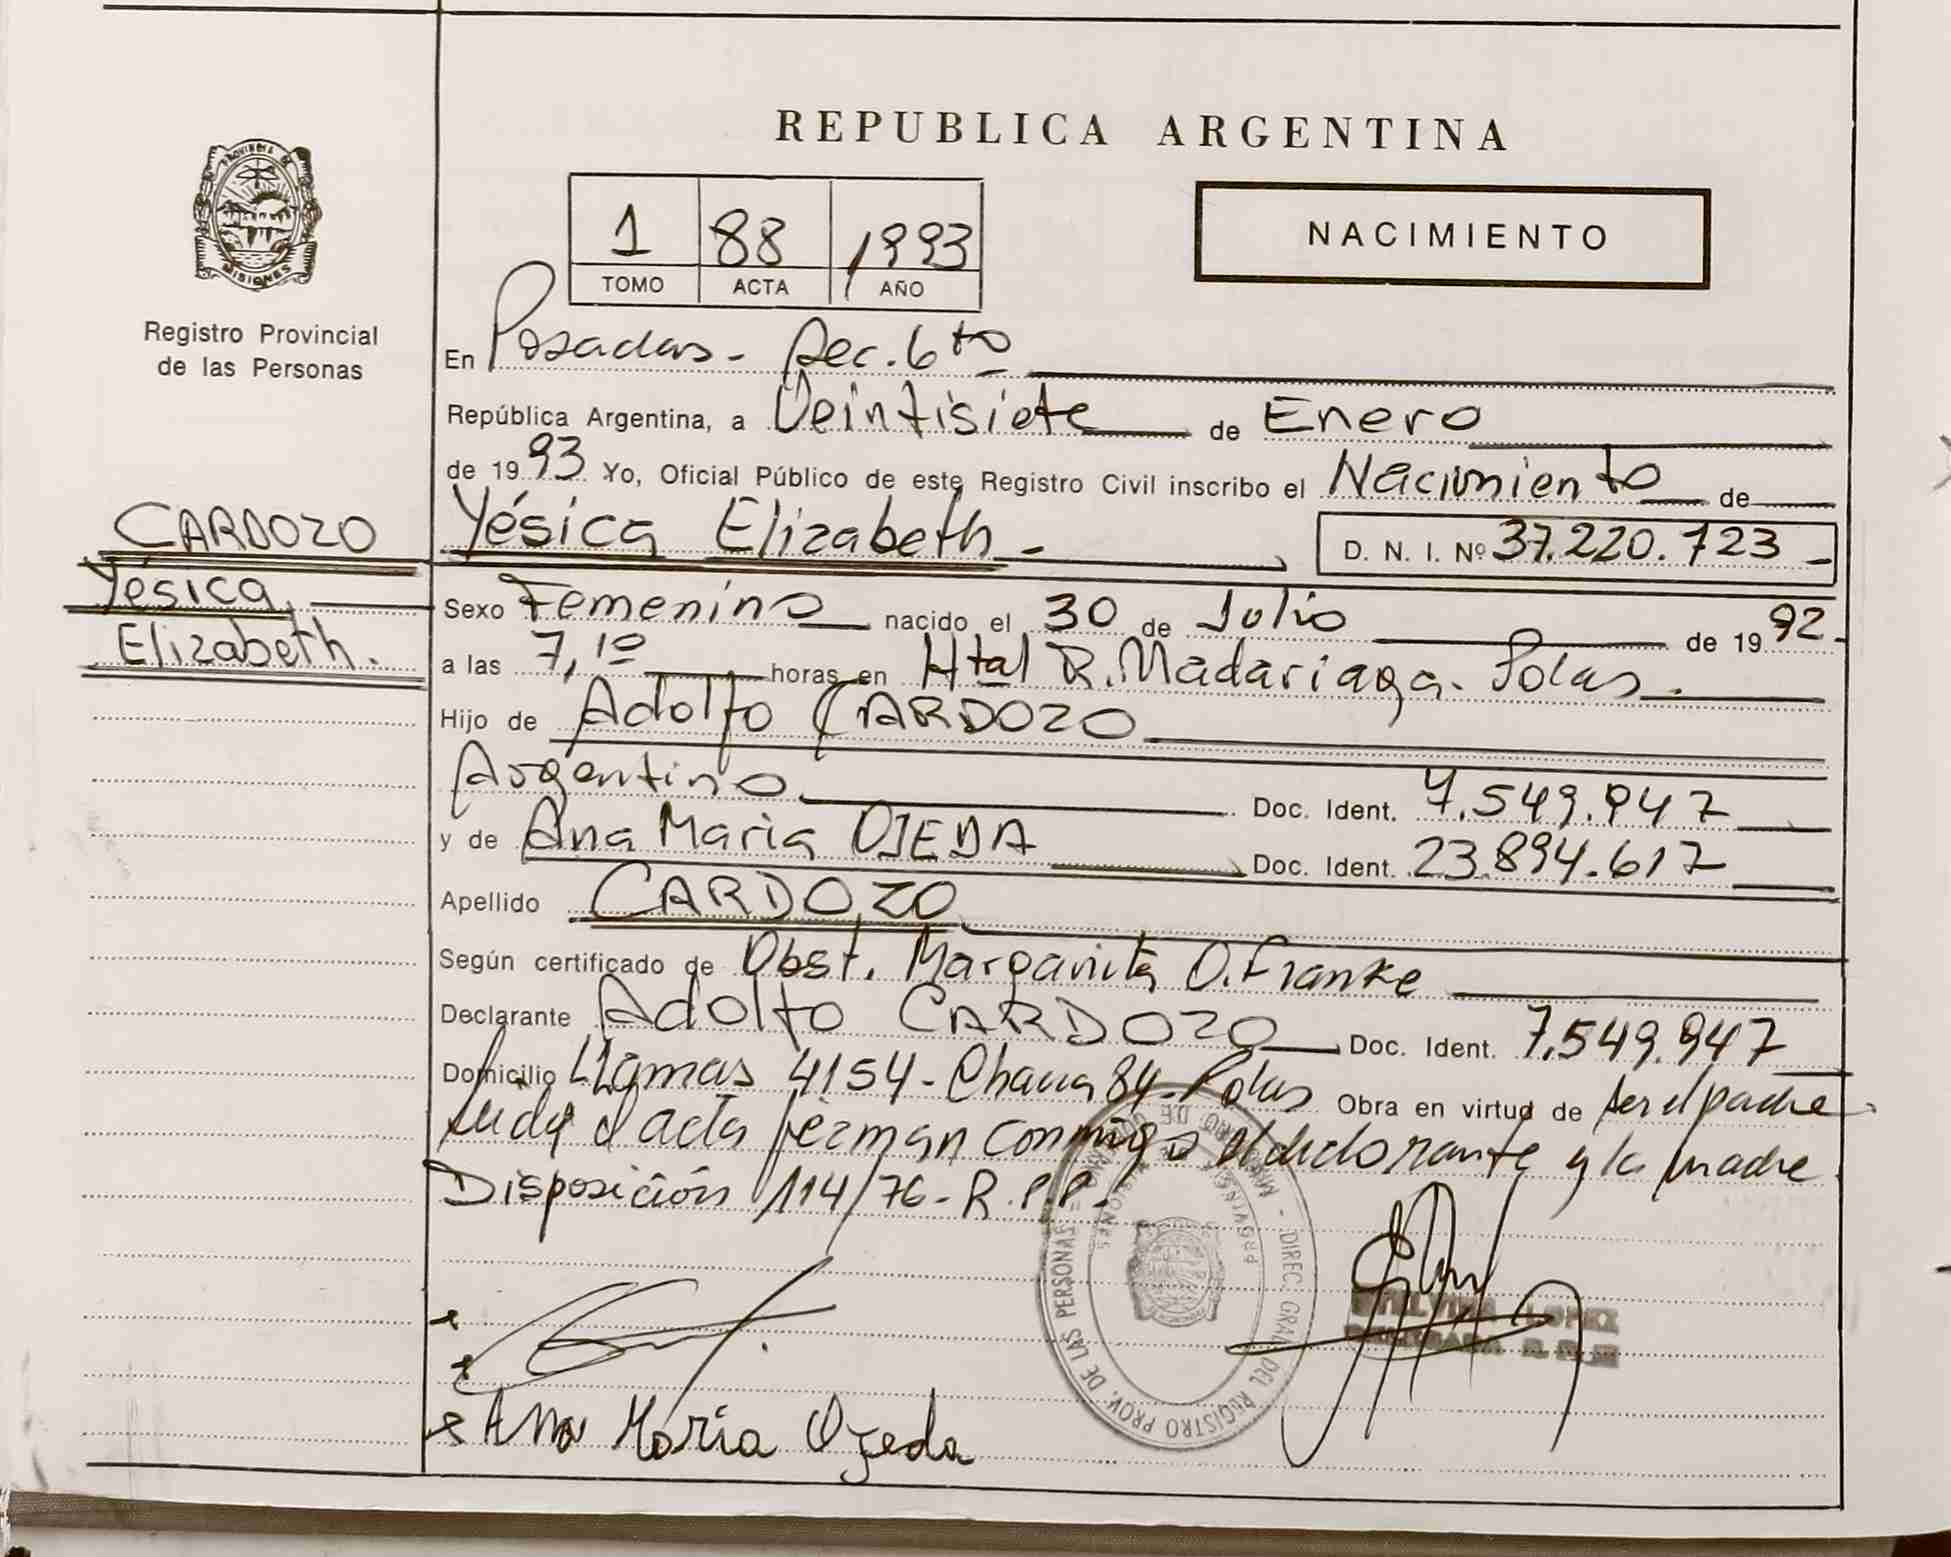 REPUBLICA ARGENTINA
PROVINCIA DE MISIONES
Registro Provincial
de las Personas
1 88 1993
TOMO ACTA AÑO
NACIMIENTO
En Posadas - Sec. 6to
República Argentina, a Veintisiete de Enero
de 1993 Yo, Oficial Público de este Registro Civil inscribo el Nacimiento de
CARDOZO
Yésica
Elizabeth.
Yésica Elizabeth - D. N. I. Nº 37.220.723 -
Sexo Femenino nacido el 30 de Julio de 1992.
a las 7,10 horas en Htal R. Madariaga. Pdas.
Hijo de Adolfo CARDOZO
Argentino Doc. Ident. 7.549.947
y de Ana Maria OJEDA Doc. Ident. 23.894.617
Apellido CARDOZO
Según certificado de Obst. Margarita O. Franke
Declarante Adolfo CARDOZO Doc. Ident. 7.549.947
Domicilio Llamas 4154 - Chacra 84 - Pdas Obra en virtud de ser el padre
Leída el acta firman conmigo el declarante y la madre
Disposición 114/76 - R.P.P.
DIREC. GRAL. DEL REGISTRO PROV. DE LAS PERSONAS
PROVINCIA DE MISIONES
LOPEZ
Ana María Ojeda